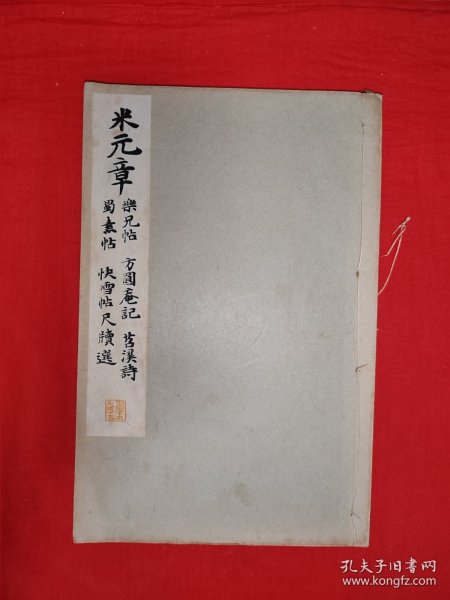 米元章
樂兄帖 方圓庵記 苕溪詩
蜀素帖 快雪帖 尺牘選
孔夫子旧书网
www.kongfz.com